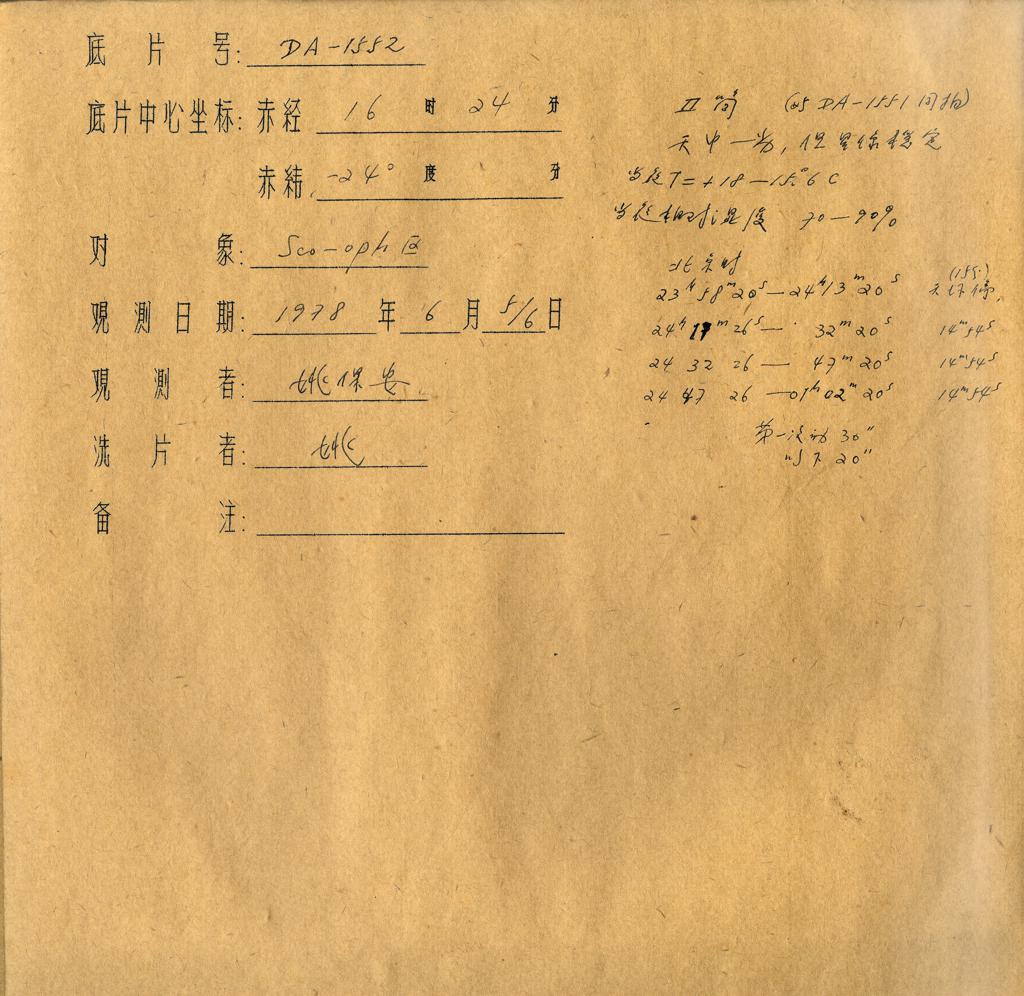 底片号: DA-1552
底片中心坐标: 赤经 16 时 24 分
赤纬 -24° 度 分
对象: Sco-oph 区
观测日期: 1978 年 6 月 5/6 日
观测者: 姚保安
洗片者: 姚
备注:
II 筒 (与 DA-1551 同拍)
天中一为, 但星像稳定
当夜 T = +18 — 15.°6 C
当夜相对湿度 70 — 90%
北京时
23ʰ 58ᵐ 20ˢ — 24ʰ 13ᵐ 20ˢ (15ᵐ)
24ʰ 17ᵐ 26ˢ — 32ᵐ 20ˢ 14ᵐ54ˢ
24 32 26 — 47ᵐ 20ˢ 14ᵐ54ˢ
24 47 26 — 01ʰ 02ᵐ 20ˢ 14ᵐ54ˢ
第一次动 30"
以下 20"